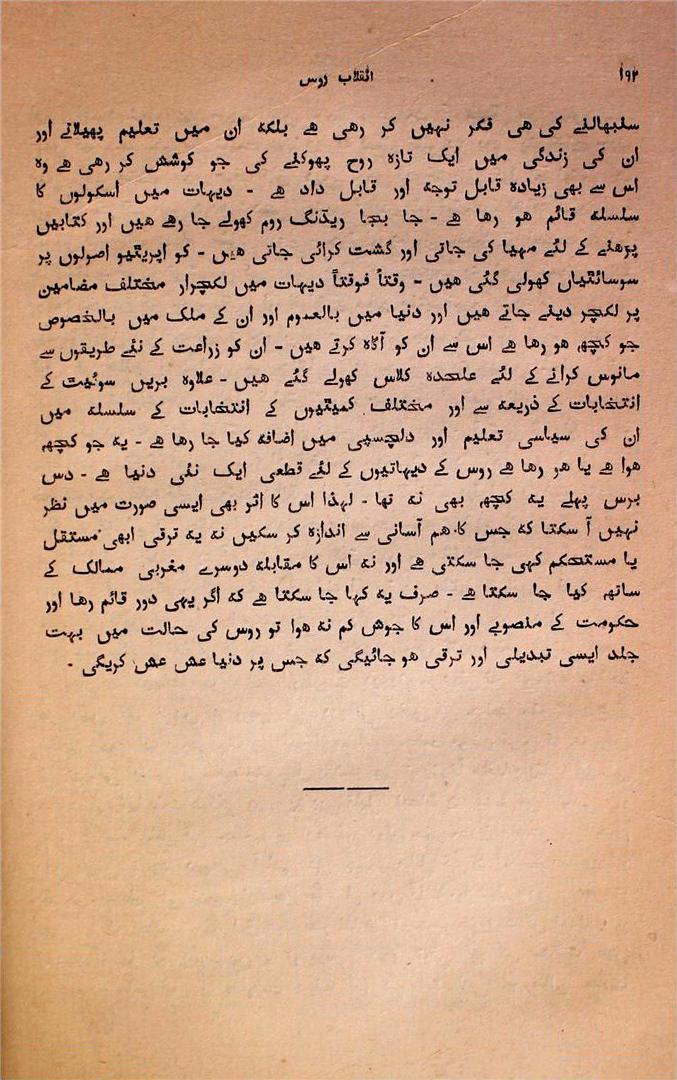 ۱۹۲ انقلاب روس
سنبھالنے کی ھی فکر نہیں کر رھی ھے بلکہ ان میں تعلیم پھیلانے اور
ان کی زندگی میں ایک تازہ روح پھوکنے کی جو کوشش کر رھی ھے وہ
اس سے بھی زیادہ قابل توجہ اور قابل داد ھے - دیہات میں اسکولوں کا
سلسلہ قائم ھو رھا ھے - جا بجا ریڈنگ روم کھولے جا رھے ھیں اور کتابیں
پڑھنے کے لئے مہیا کی جاتی اور گشت کرائی جاتی ھیں - کو اپریٹیو اصولوں پر
سوسائٹیاں کھولی گئی ھیں - وقتاً فوقتاً دیہات میں لکچرار مختلف مضامین
پر لکچر دینے جاتے ھیں اور دنیا میں بالعموم اور ان کے ملک میں بالخصوص
جو کچھ ھو رھا ھے اس سے ان کو آگاہ کرتے ھیں - ان کو زراعت کے نئے طریقوں سے
مانوس کرانے کے لئے علحدہ کلاس کھولے گئے ھیں - علاوہ بریں سوئیت کے
انتخابات کے ذریعہ سے اور مختلف کمیٹیوں کے انتخابات کے سلسلہ میں
ان کی سیاسی تعلیم اور دلچسپی میں اضافہ کیا جا رھا ھے - یہ جو کچھ
ھوا ھے یا ھو رھا ھے روس کے دیہاتیوں کے لئے قطعی ایک نئی دنیا ھے - دس
برس پہلے یہ کچھ بھی نہ تھا - لہذا اس کا اثر بھی ایسی صورت میں نظر
نہیں آ سکتا کہ جس کا ھم آسانی سے اندازہ کر سکیں نہ یہ ترقی ابھی مستقل
یا مستحکم کہی جا سکتی ھے اور نہ اس کا مقابلہ دوسرے مغربی ممالک کے
ساتھ کیا جا سکتا ھے - صرف یہ کہا جا سکتا ھے کہ اگر یہی دور قائم رھا اور
حکومت کے منصوبے اور اس کا جوش کم نہ ھوا تو روس کی حالت میں بہت
جلد ایسی تبدیلی اور ترقی ھو جائیگی کہ جس پر دنیا عش عش کریگی -